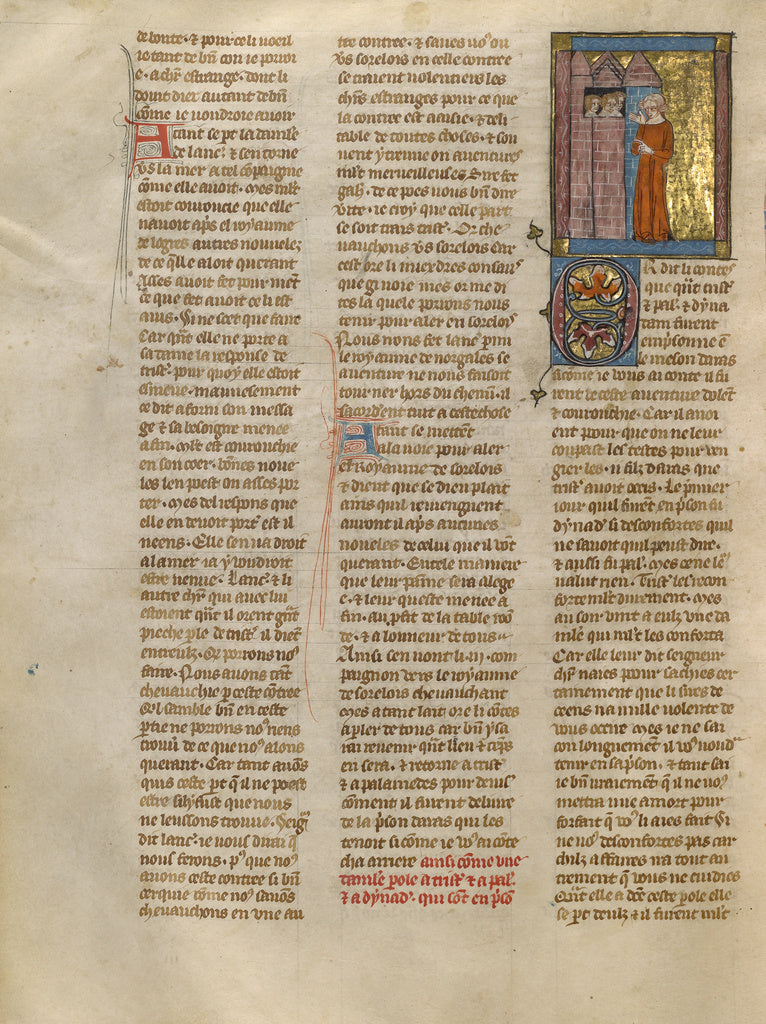 de bonte · & pour ce li voeil
ie tant de bñ con ie porroi
e · a chr̃ estrange · dont li
doint diex autant de bñ
cõme ie voudroie auoir
Atant se pt la damse
de lanc̾ · & sen torne
v̾s la mer a tel cõpaignie
cõme elle auoit · mes mlt̾
estoit courouciee que elle
nauoit ap̾s el royaume
de logres autres nouuelez
de ce q̃lle aloit querant
Asses auoit fet pour
ce que fet auoit ce li est
auis · Si ne scet que faire
Car qñt elle ne porte a
sa dame la response de
trist̾ · pour quoy elle estoit
esmeue · mauuesement
ce dit a forni son messa
ge & sa besoigne menee
a fin · mlt̾ est courouchie
en son coer · bõnes nouue
les len puest on asses por
ter · mes del respons que
elle en deuoit port̾ est il
neens · Elle sen va droit
a la mer ia y voudroit
estre venue · lanc̾ · & li
autre chr̃ qui auec lui
estoient qñt il orent gñt
pieche ple de trist̾ · il diẽt
entreulz · Or porrons no⁹
faire · Nous auons tãt
cheuauchie p ceste cõtree
q̾l samble bñ en ceste
ptie ne porrons no⁹ nens
trouu̾ de ce que no⁹ alons
querant · Car tant auõs
quis ceste pt q̃ il ne poest
estre sil y fust que nous
ne leussons trouue · Seig̾
dit lanc̾ · ie vous dirai q̃
nous ferons · p⁹ que no⁹
auons ceste contree si bñ
cerquie cõme no⁹ sauõs
cheuauchons en vne au
tre contree · & saues vo⁹ ou
v̾s sorelois en celle contree
se traient volentiers les
chr̃s estranges pour ce que
la contree est aaisie · & deli
table de toutes choses · & sou
uent y tienne on auentures
mlt̾ merueilleuses Sire fet
gah̾ · de ce poes uous bñ dire
v̾ite · ie croy que celle part
se soit trais trist̾ · Or che
uauchons v̾s sorelois car
cest ore li mieudres consaus
que gi voie mes or me di
tes la quele porrons nous
tenir pour aler en sorelois
Nous nons fet lanc̾ pmi
le royaume de norgales se
auenture ne nous faisoit
tourner hors du chemin · il
sacordent tuit a ceste chose
Atant se mettent
a la voie pour aler
el Royaume de sorelois
& dient que se dieu plaist
ains quil reuiengnent
auront il ap̾s aucunes
noueles de celui que il võt
querant · En tele maniere
que leur paine sera alege
e · & leur queste menee a
fin · au pfit de la table roõ
de · & a lonneur de tous
Ainsi sen vont li · iii · com
paignon deuers le royaume
de sorelois cheuauchant
mes a tant lait ore li cõtes
a pler de tous car bñ y sa
rai reuenir qñt lieu & tẽps
en sera · & retorne a trist̾
& a palamedes pour deuis̾
cõment il furent deliure
de la pson daras qui les
tenoit si cõme ie v⁹ ai cõte
cha arriere ainsi cõme vne
damse pole a trist̾ · & a pal̾
& a dynad̾ · qui sõt en psõ
OR dit li contes
que qñt trist̾
& pal̾ · & dyna
dam furent
empsonne ẽ
le meson daras
si cõme ie vous ai conte il fu
rent de ceste auenture dolẽt
& courouchie · Car il auoi
ent paour que on ne leur
coupast les testes pour ven
gier les · ii filz daras que
trist̾ auoit ocis · Le pmier
iour quil furẽt en pson fu
dynad̾ si desconfortes quil
ne sauoit quil peust dire ·
& aussi fu pal̾ · mes ce ne le⁹
ualut rien · Trist̾ les recon
forte mlt̾ durement · mes
au soir vint a eulz vne da
misele qui mlt̾ les conforta
Car elle leur dit seigneur
chr̃ naies paour sachies cer
tainement que li sires de
ceens na mille volente de
vous ocirre mes ie ne sai
con longuement il v⁹ voud
tenir en sa pson · & tant sai
ie bñ uraiement q̃ il ne vo⁹
mettra mie a mort pour
forfait q̃ vo⁹ li aies fait Si
ne vo⁹ desconfortes pas car
chilz affaires ira tout au
trement q̃ vous ne cuidies
Qñt elle a dte ceste pole elle
se pt deulz · & il furent mlt̾